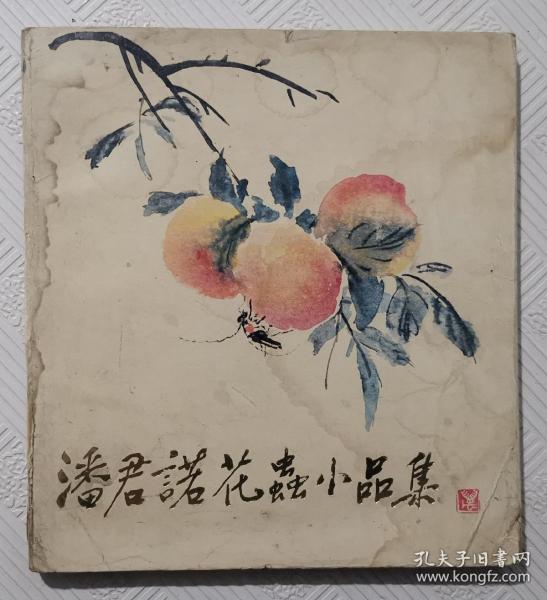 潘君諾花蟲小品集
孔夫子旧书网
www.kongfz.com